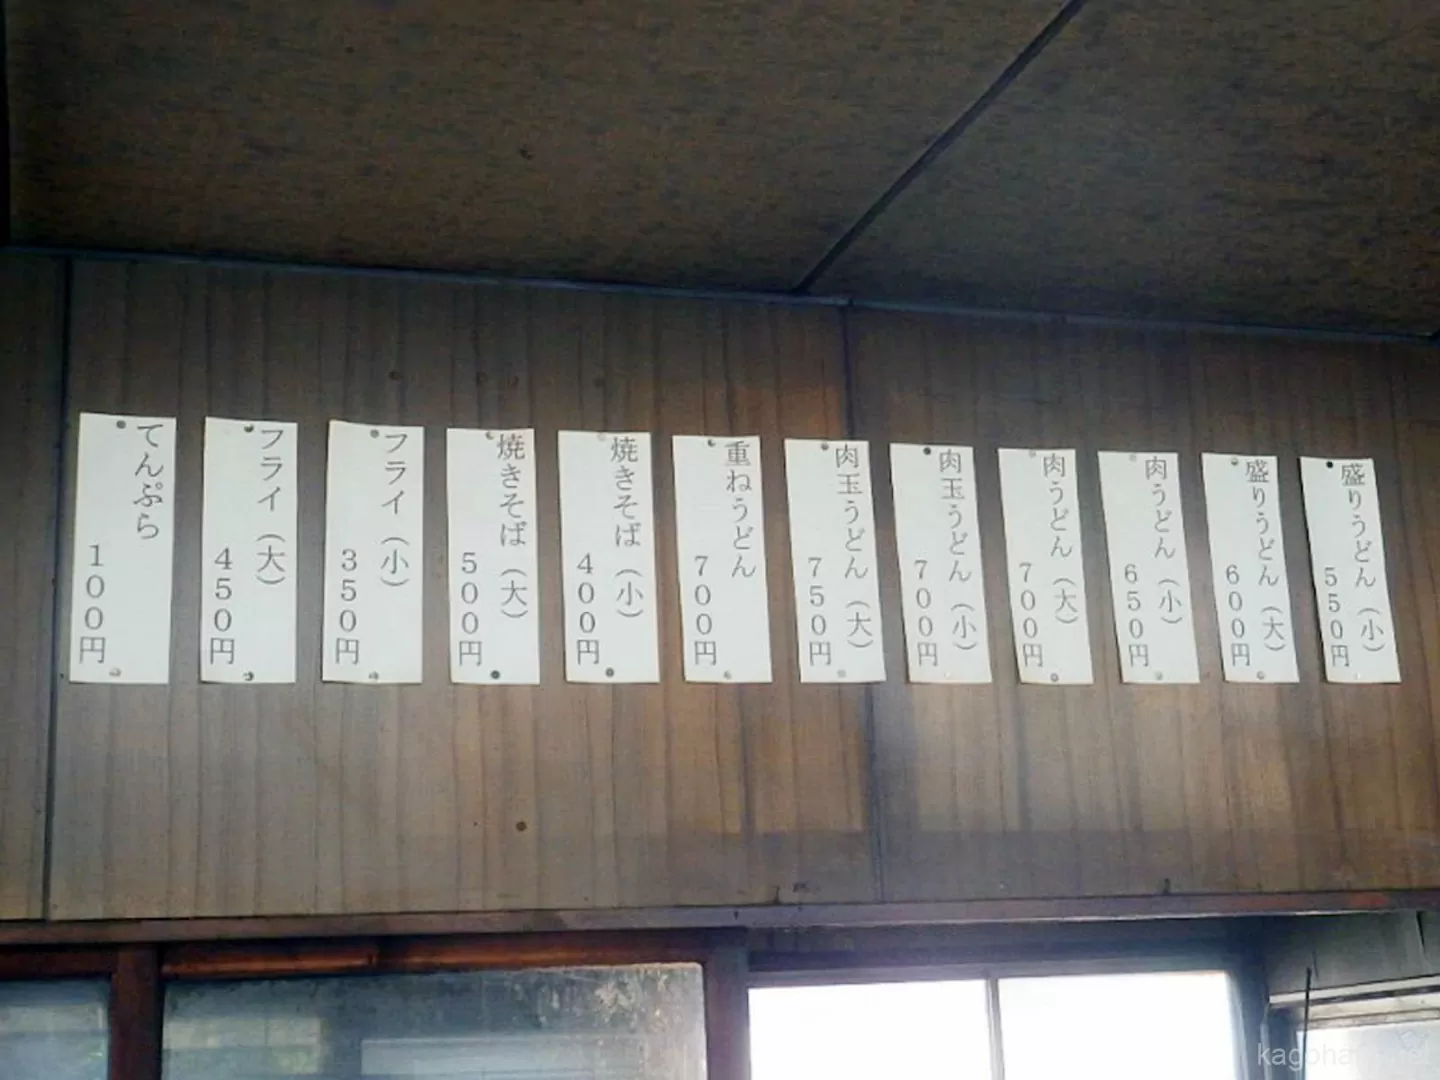 盛りうどん（小）
550円
盛りうどん（大）
600円
肉うどん（小）
650円
肉うどん（大）
700円
肉玉うどん（小）
700円
肉玉うどん（大）
750円
重ねうどん
700円
焼きそば（小）
400円
焼きそば（大）
500円
フライ（小）
350円
フライ（大）
450円
てんぷら
100円